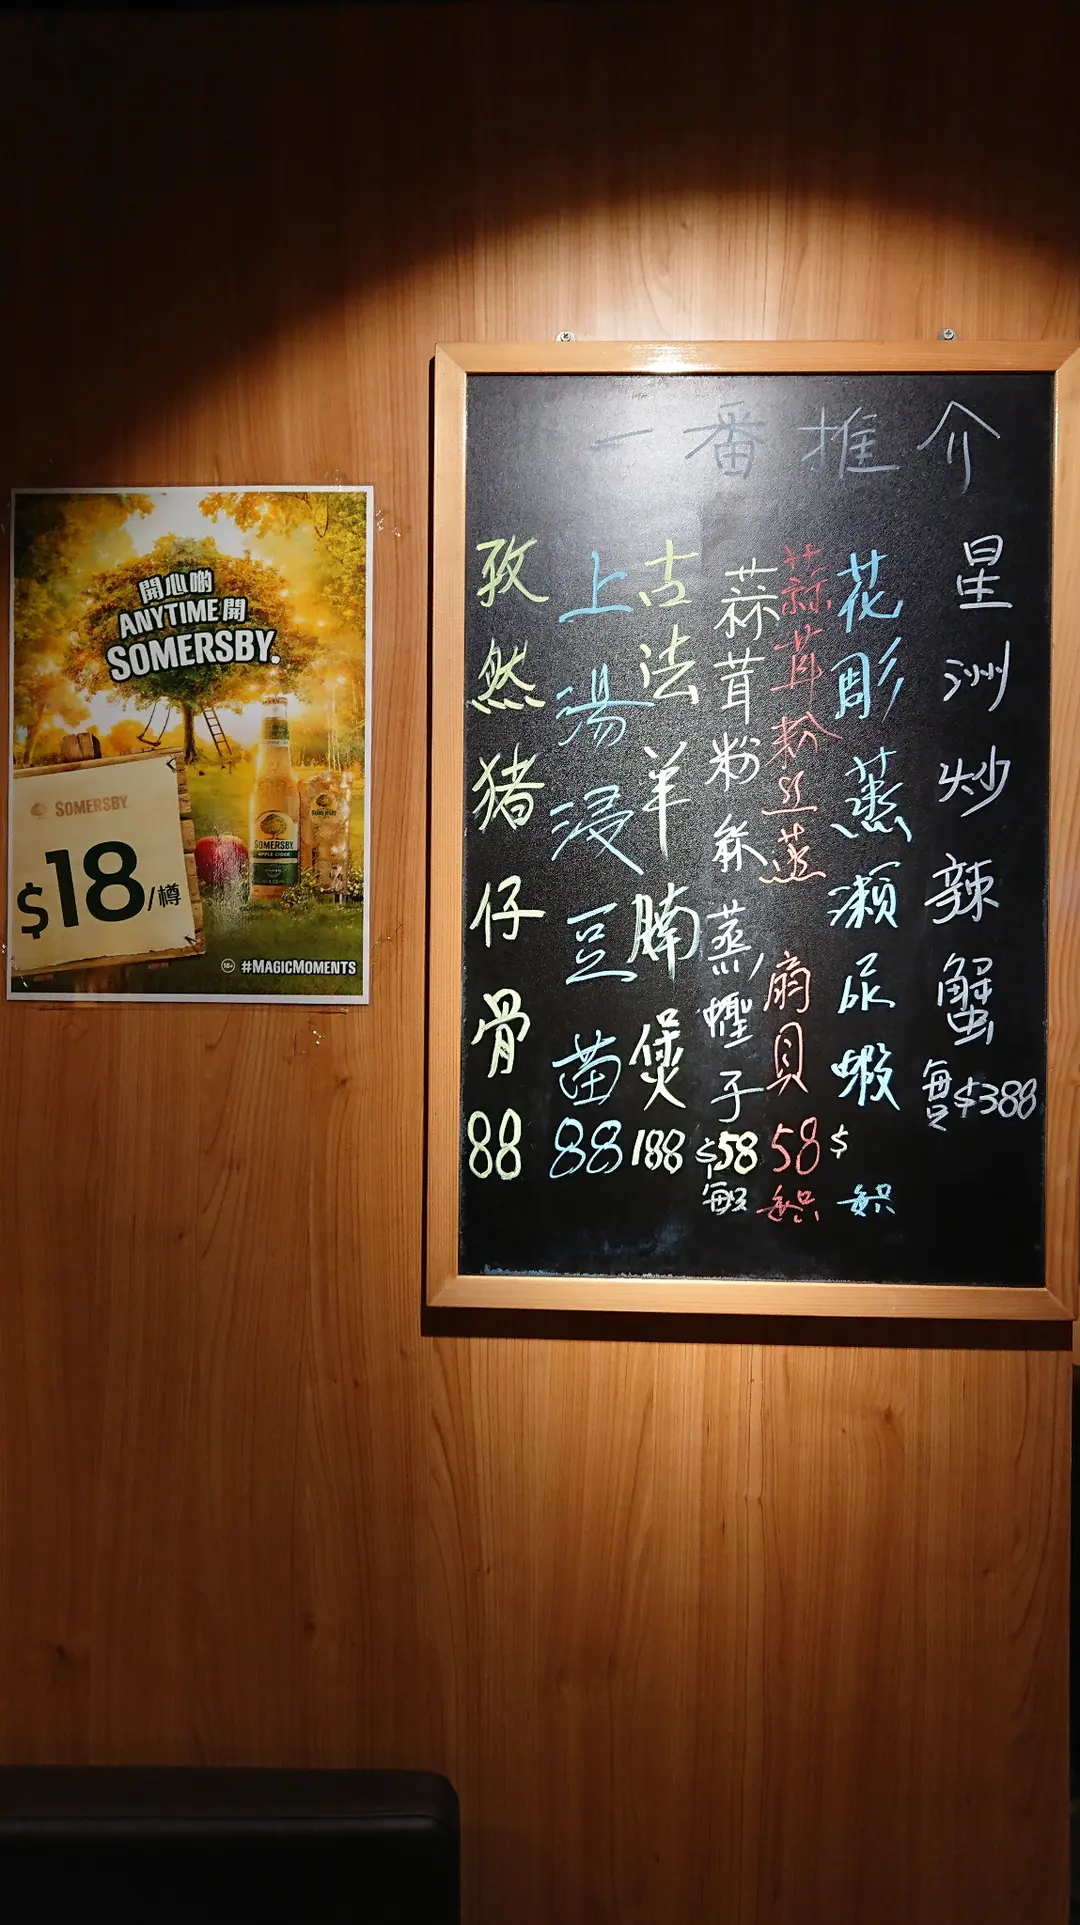 開心啲
ANYTIME開
SOMERSBY.
SOMERSBY
$18/樽
SOMERSBY
APPLE CIDER
18+ #MAGICMOMENTS
一番推介
星洲炒辣蟹
每只$388
花彫蒸瀨尿蝦
$
每只
蒜茸粉丝蒸扇貝
58
每只
蒜茸粉絲蒸蟶子
$58
每只
古法羊腩煲
188
上湯浸豆苗
88
孜然猪仔骨
88